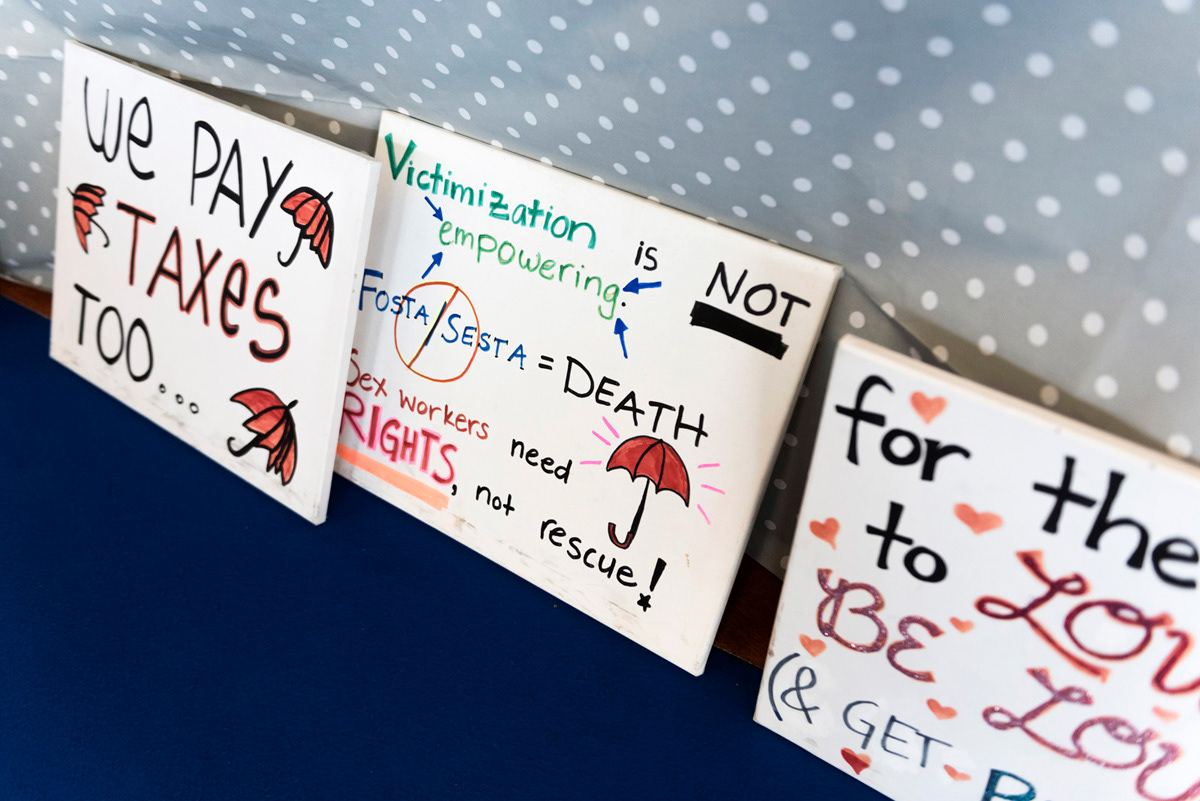 We PAY
TAXeS
TOO...
Victimization is NOT
empowering.
FOSTA/SESTA = DEATH
Sex workers need
RIGHTS, not rescue!
for the
to
BE
(& GET